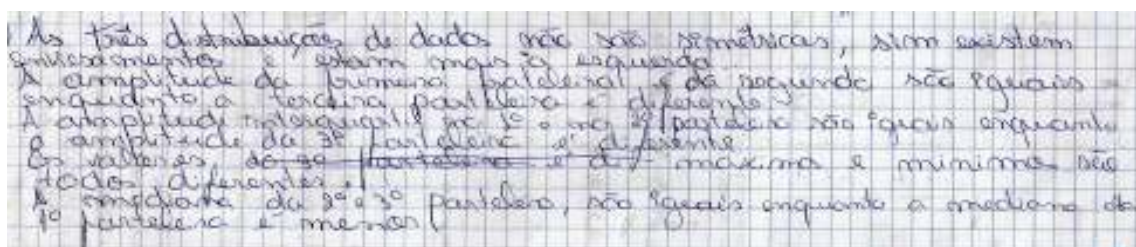 As três distribuições de dados não são simétricas, sim existem
enviesamentos e estam mais à esquerda.
A amplitude da primeira pateleira e da segunda são iguais
enquanto a terceira parteleira é diferente.
A amplitude interquartil na 1º e na 2º parteleira são iguais enquanto
a amplitude da 3º parteleira é diferente.
Os valores, do 3º parteleira é d máximo e mínimo são
todos diferentes.
A mediana da 2º e 3º parteleira, são iguais enquanto a mediana da
1º parteleira é menor.